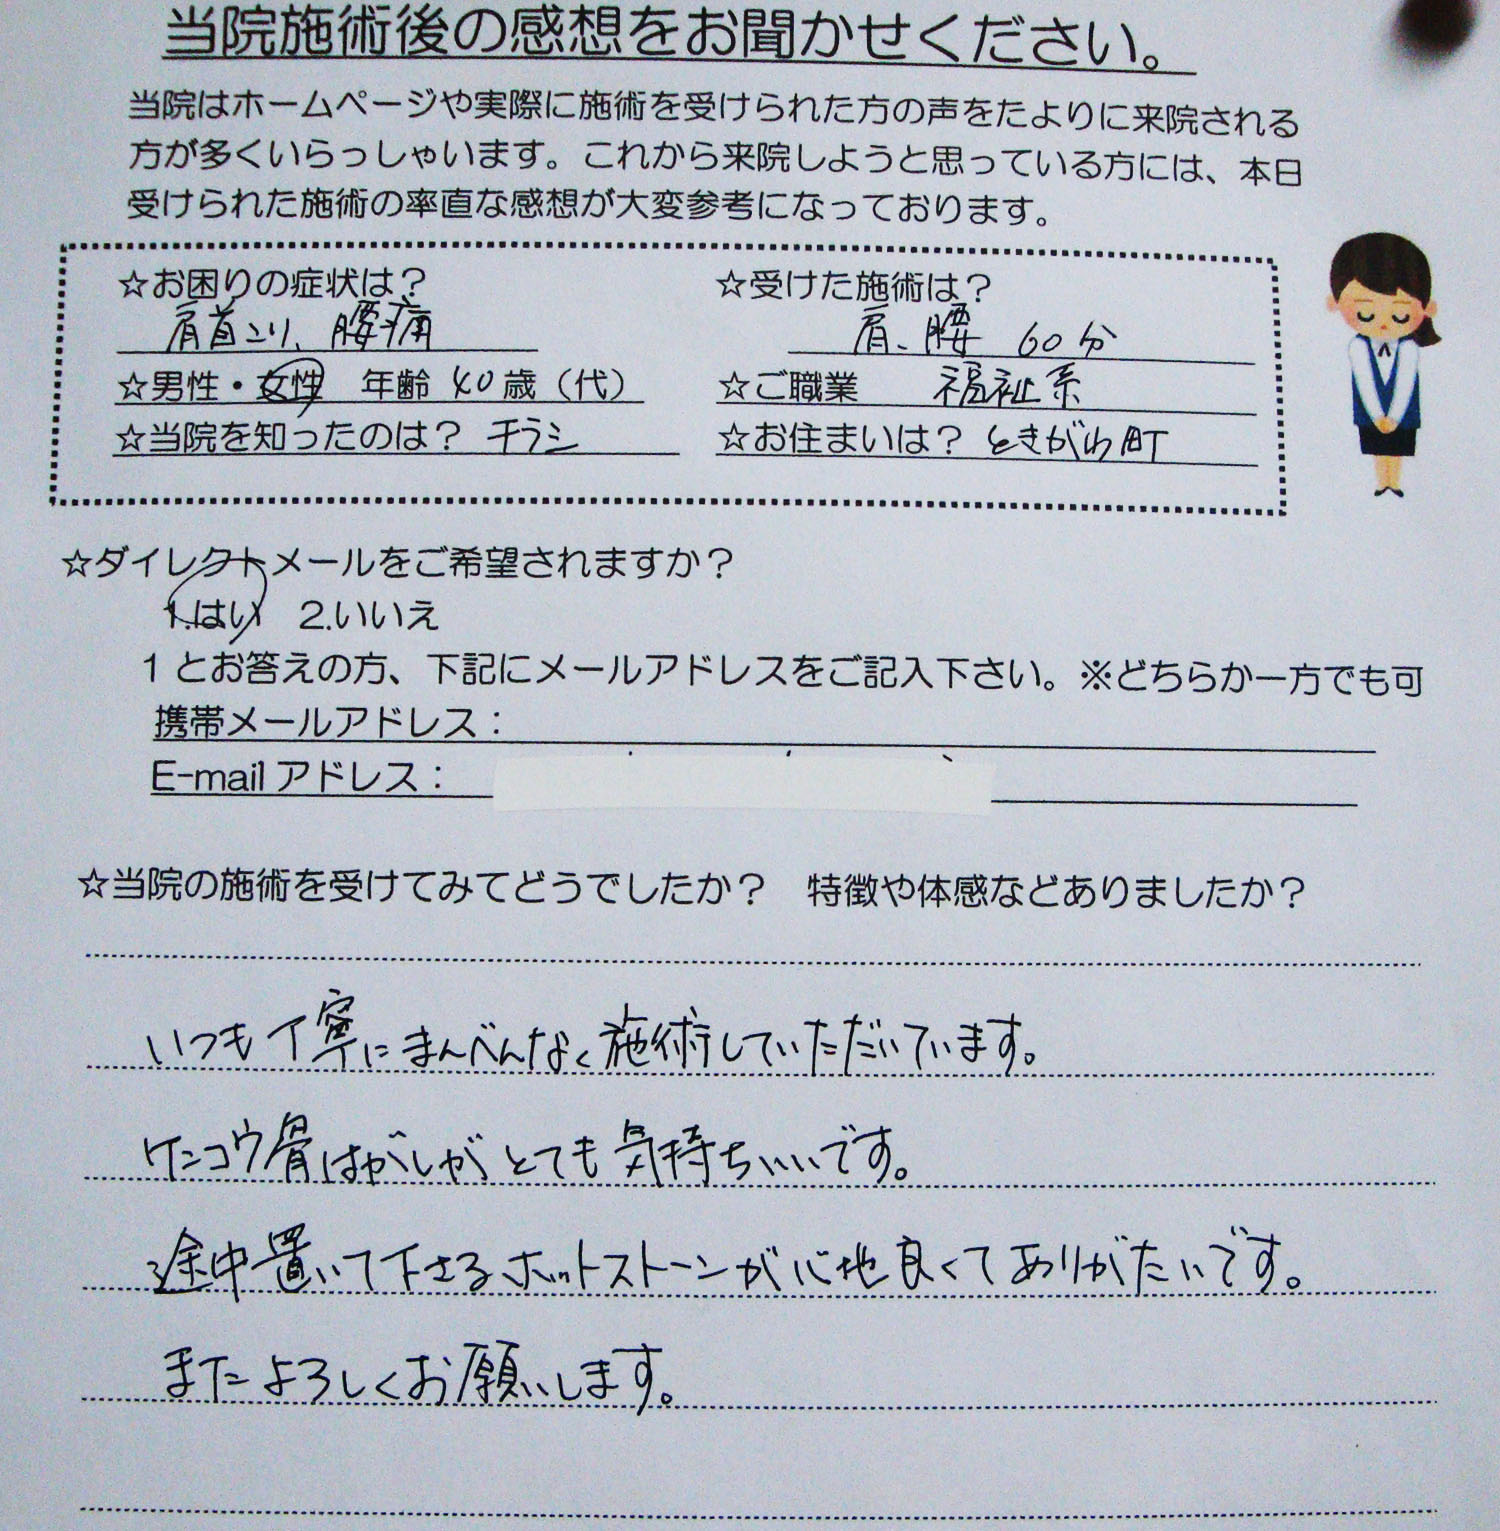 当院施術後の感想をお聞かせください。
当院はホームページや実際に施術を受けられた方の声をたよりに来院される
方が多くいらっしゃいます。これから来院しようと思っている方には、本日
受けられた施術の率直な感想が大変参考になっております。
☆お困りの症状は？ ☆受けた施術は？
肩首こり、腰痛 肩、腰 60分
☆男性・女性 年齢 40歳（代） ☆ご職業 福祉系
☆当院を知ったのは？ チラシ ☆お住まいは？ ときがわ町
☆ダイレクトメールをご希望されますか？
1.はい 2.いいえ
1とお答えの方、下記にメールアドレスをご記入下さい。※どちらか一方でも可
携帯メールアドレス：
E-mailアドレス：
☆当院の施術を受けてみてどうでしたか？ 特徴や体感などありましたか？
いつも丁寧にまんべんなく施術していただいています。
ケンコウ骨はがしがとても気持ちいいです。
途中置いて下さるホットストーンが心地良くてありがたいです。
またよろしくお願いします。